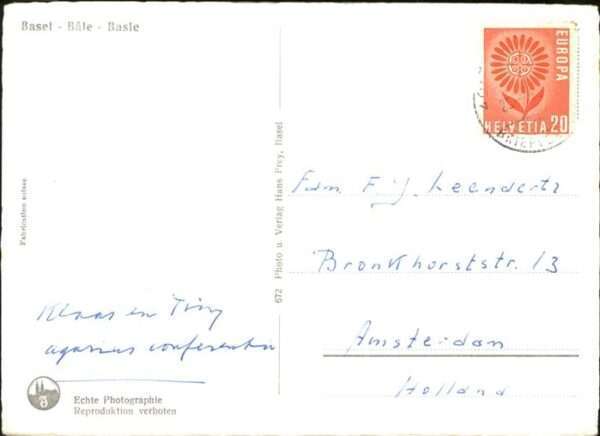 Basel - Bâle - Basle
EUROPA
HELVETIA 20
Fabrication suisse
672 Photo u. Verlag Hans Frey, Basel
Fam. Leendertz
Bronkhorststr. 13
Amsterdam
Holland
Klaas en Tiny
Echte Photographie
Reproduktion verboten